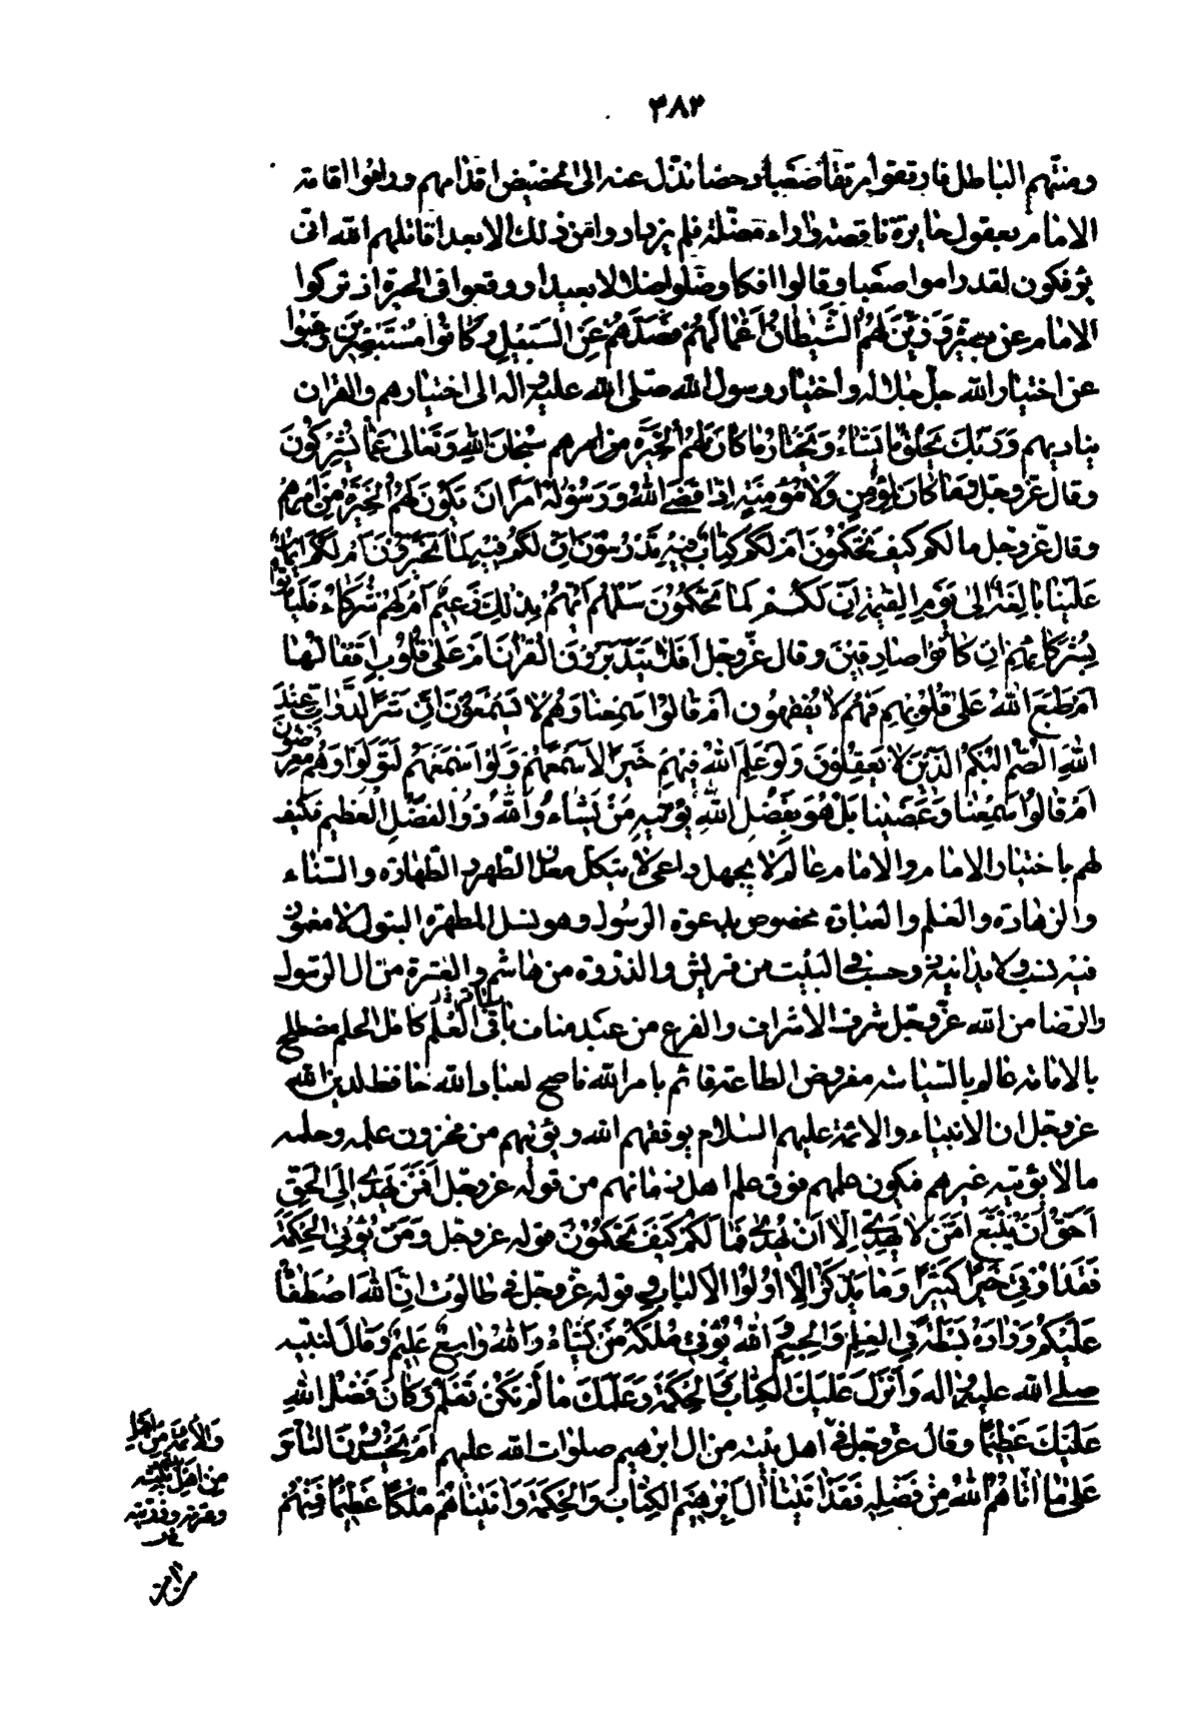 ٣٨٢
ومنتهم الباطل فارتقوا مرتقا صعبا دحضا تذل عنه الى الحضيض اقدامهم وراموا اقامة
الامام بعقول حايرة ناقصة واراء مضلة فلم يزدادوا منه ذلك الا بعدا قاتلهم الله انى
يؤفكون لقد راموا صعبا وقالوا افكا وضلوا ضلالا بعيدا ووقعوا فى الحيرة اذ تركوا
الامام عن بصيرة وَزَيَّنَ لَهُمُ الشَّيْطانُ اَعْمالَهُمْ فَصَدَّهُمْ عَنِ السَّبيلِ وَكانُوا مُسْتَبْصِرينَ رغبوا
عن اختيار الله جل جلاله واختيار رسول الله صلى الله عليه واله الى اختيارهم والقران
يناديهم وَرَبُّكَ يَخْلُقُ ما يَشاءُ وَيَخْتارُ ما كانَ لَهُمُ الْخِيَرَةُ من امرهم سُبْحانَ اللهِ وَتَعالى عَمّا يُشْرِكُونَ
وقال عز وجل وَما كانَ لِمُؤْمِنٍ وَلا مُؤْمِنَةٍ اِذا قَضَى اللهُ وَرَسُولُهُ اَمْرًا اَنْ يَكُونَ لَهُمُ الْخِيَرَةُ مِنْ اَمْرِهِمْ
وقال عز وجل ما لكم كيف تَحْكُمُونَ اَمْ لَكُمْ كِتابٌ فيهِ تَدْرُسُونَ اِنَّ لَكُمْ فيهِ لَما تَخَيَّرُونَ اَمْ لَكُمْ اَيْمانٌ
عَلَيْنا بالِغَةٌ اِلى يَوْمِ الْقِيمَةِ اِنَّ لَكُمْ لَما تَحْكُمُونَ سَلْهُمْ اَيُّهُمْ بِذلِكَ زَعيمٌ اَمْ لَهُمْ شُرَكاءُ فَلْيَأْتُوا
بِشُرَكائِهِمْ اِنْ كانُوا صادِقينَ وقال عز وجل اَفَلا يَتَدَبَّرُونَ الْقُرْانَ اَمْ عَلى قُلُوبٍ اَقْفالُها
اَمْ طَبَعَ اللهُ عَلى قُلُوبِهِمْ فَهُمْ لا يَفْقَهُون اَمْ قالُوا سَمِعْنا وَهُمْ لا يَسْمَعُونَ اِنَّ شَرَّ الدَّوابِّ عِنْدَ
اللهِ الصُّمُّ الْبُكْمُ الَّذينَ لا يَعْقِلُونَ وَلَوْ عَلِمَ اللهُ فيهِمْ خَيْرًا لَاَسْمَعَهُمْ وَلَوْ اَسْمَعَهُمْ لَتَوَلَّوْا وَهُمْ مُعْرِضُونَ
اَمْ قالُوا سَمِعْنا وَعَصَيْنا بَلْ هُوَ بِفَضْلِ اللهِ يُؤْتيهِ مَنْ يَشاءُ وَاللهُ ذُو الْفَضْلِ الْعَظيمِ فكيف
لهم باختيار الامام والامام عالم لا يجهل داعى لا ينكل معدن الطهر والطهارة والسناء
والزهادة والعلم والعبادة مخصوص بدعوة الرسول وهو نسل المطهرة البتول لا مغمز
فيه بنسب ولا يدانيه ذو حسب فى البيت من قريش والذروة من هاشم والعترة من ال الرسول
والرضا من الله عز وجل شرف الاشراف والفرع من عبد مناف باقى العلم كامل الحلم مضطلع
بالامامة عالم بالسياسة مفروض الطاعة قائم بامر الله ناصح لعباد الله حافظ لدين الله
عز وجل ان الانبياء والائمة عليهم السلام يوفقهم الله ويؤتيهم من مخزون علمه وحلمه
ما لا يؤتيه غيرهم فيكون علمهم فوق علم اهل زمانهم من قوله عز وجل اَفَمَنْ يَهْدى اِلَى الْحَقِّ
اَحَقُّ اَنْ يُتَّبَعَ اَمَّنْ لا يَهِدّى اِلّا اَنْ يُهْدى فَما لَكُمْ كَيْفَ تَحْكُمُونَ قوله عز وجل وَمَنْ يُؤْتَ الْحِكْمَةَ
فَقَدْ اُوتِىَ خَيْرًا كَثيرًا وَما يَذَّكَّرُ اِلّا اُولُوا الْاَلْبابِ وقوله عز وجل فى طالوت اِنَّ اللهَ اصْطَفاهُ
عَلَيْكُمْ وَزادَهُ بَسْطَةً فِى الْعِلْمِ وَالْجِسْمِ وَاللهُ يُؤْتى مُلْكَهُ مَنْ يَشاءُ وَاللهُ واسِعٌ عَليمٌ وَقالَ لنبيه
صلى الله عليه واله وَاَنْزَلَ عَلَيْكَ الْكِتابَ وَالْحِكْمَةَ وَعَلَّمَكَ ما لَمْ تَكُنْ تَعْلَمُ وَكانَ فَضْلُ اللهِ
عَلَيْكَ عَظيمًا وقال عز وجل فى اهل بيته من ال ابرهيم صلوات الله عليهم اَمْ يَحْسُدُونَ النّاسَ
عَلى ما اتاهُمُ اللهُ مِنْ فَضْلِهِ فَقَدْ اتَيْنا الَ اِبْرهيمَ الْكِتابَ وَالْحِكْمَةَ وَاتَيْناهُمْ مُلْكًا عَظيمًا فَمِنْهُمْ
وَالْأئمة من اهل
من اهل بيته
وعترته وذريته